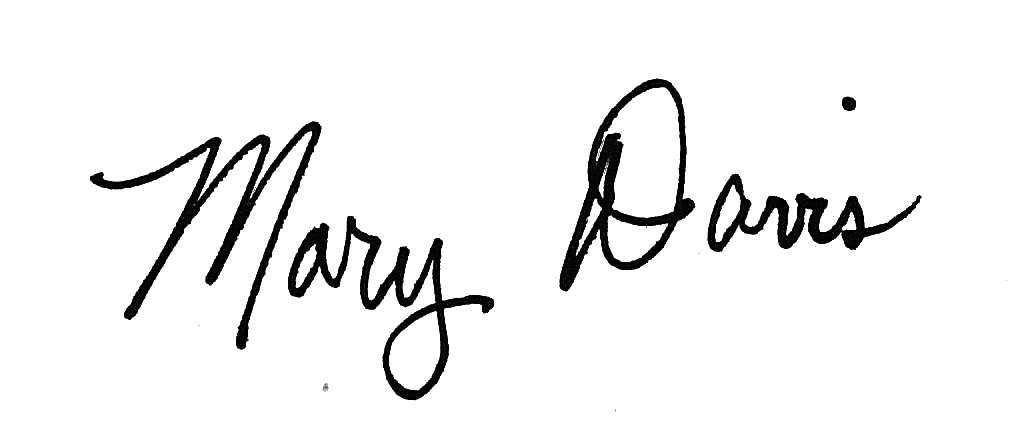 Mary Davis